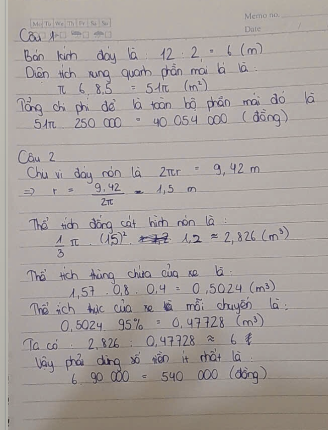 Memo no.
Mo Tu We Th Fr Sa Su
Date
Câu 1
Bán kính đáy là 12 : 2 = 6 (m)
Diện tích xung quanh phần mái lá là
π 6. 8,5 = 51π (m²)
Tổng chi phí để là toàn bộ phần mái đó là
51π 250 000 = 40 054 000 (đồng)
Câu 2
Chu vi đáy nón là 2πr = 9,42 m
=> r = 9,42 / 2π = 1,5 m
Thể tích đống cát hình nón là :
1/3 π (1,5)² 1,2 ≈ 2,826 (m³)
Thể tích thùng chứa của xe là :
1,57 . 0,8 . 0,4 = 0,5024 (m³)
Thể tích thực của xe mỗi chuyến là :
0,5024 . 95% = 0,47728 (m³)
Ta có : 2,826 : 0,47728 ≈ 6
Vậy phải dùng số tiền ít nhất là
6 . 90 000 = 540 000 (đồng)